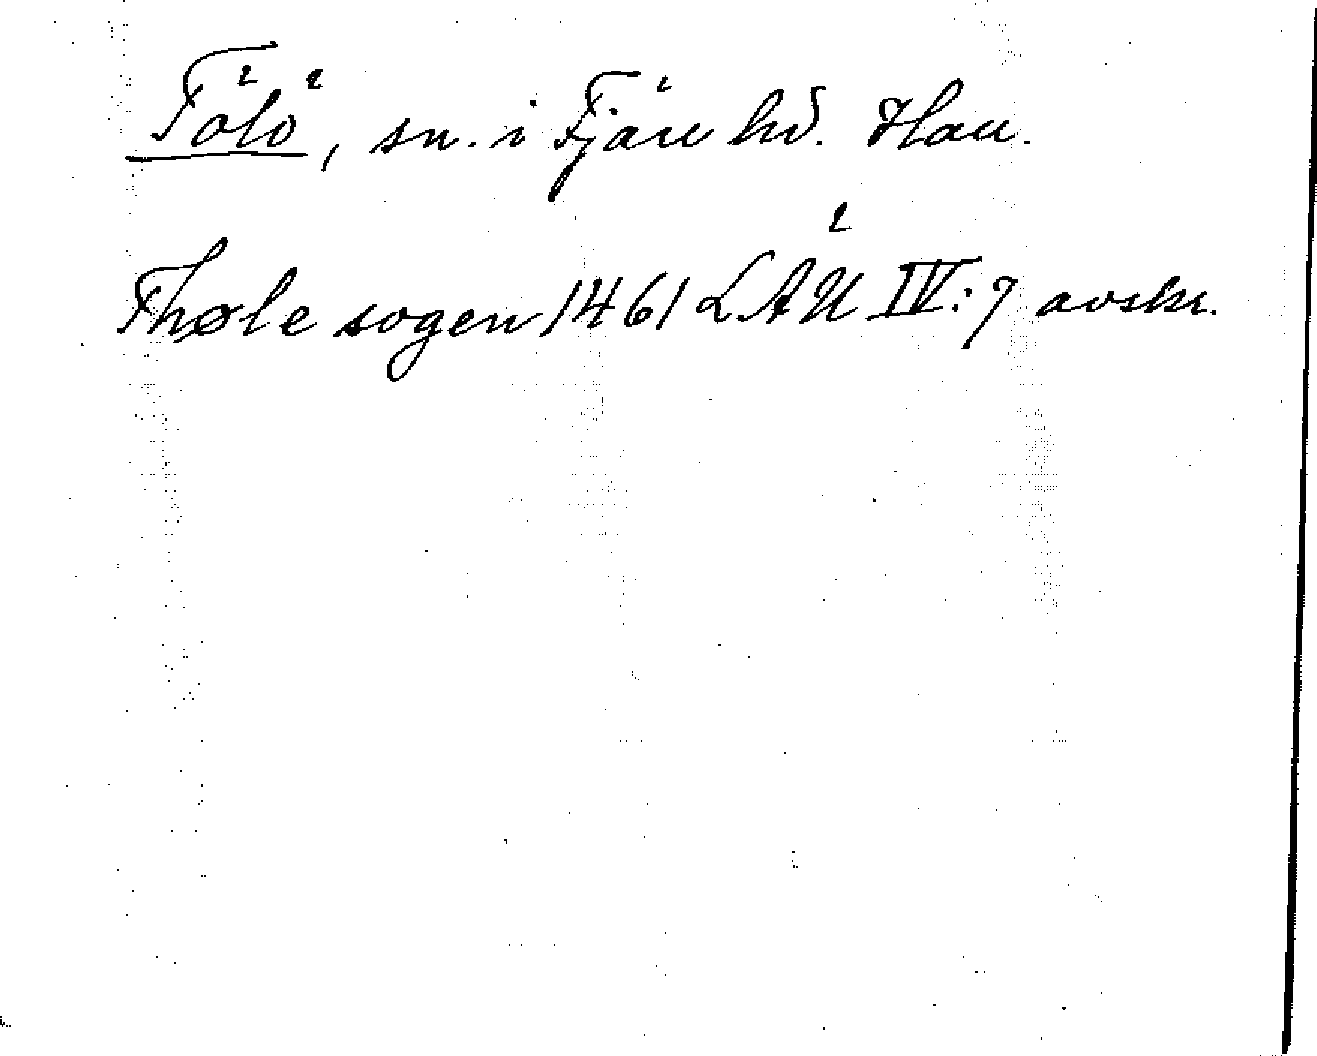 Tölö, sn. i Fjäre hd. Hall.
Thøle sogen 1461 LÄU IV:7 avskr.